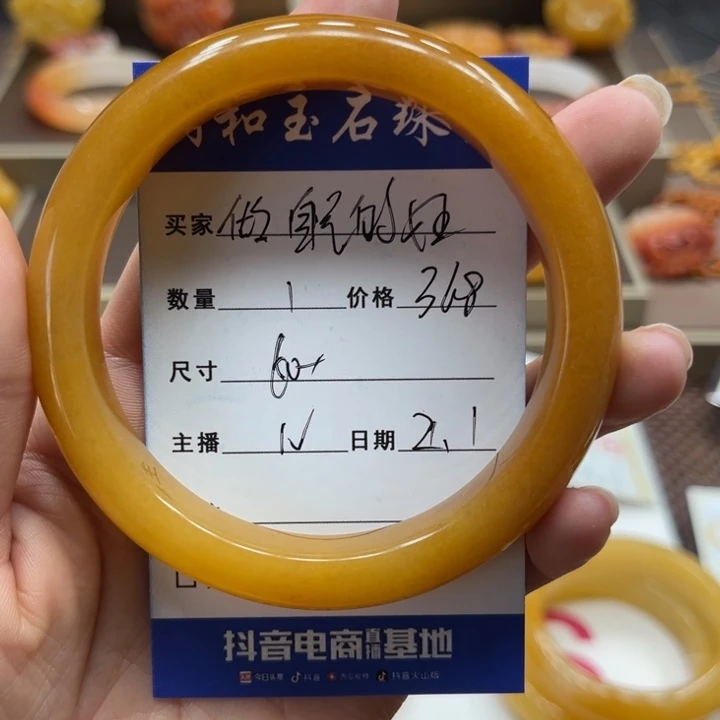 和玉石珠
买家 做自己的
数量 1 价格 368
尺寸 60+
主播 日期 2.1
抖音电商直播基地
今日头条 抖音 抖音火山版